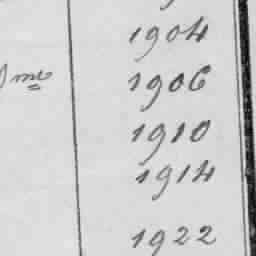 1904
me 1906
1910
1914
1922